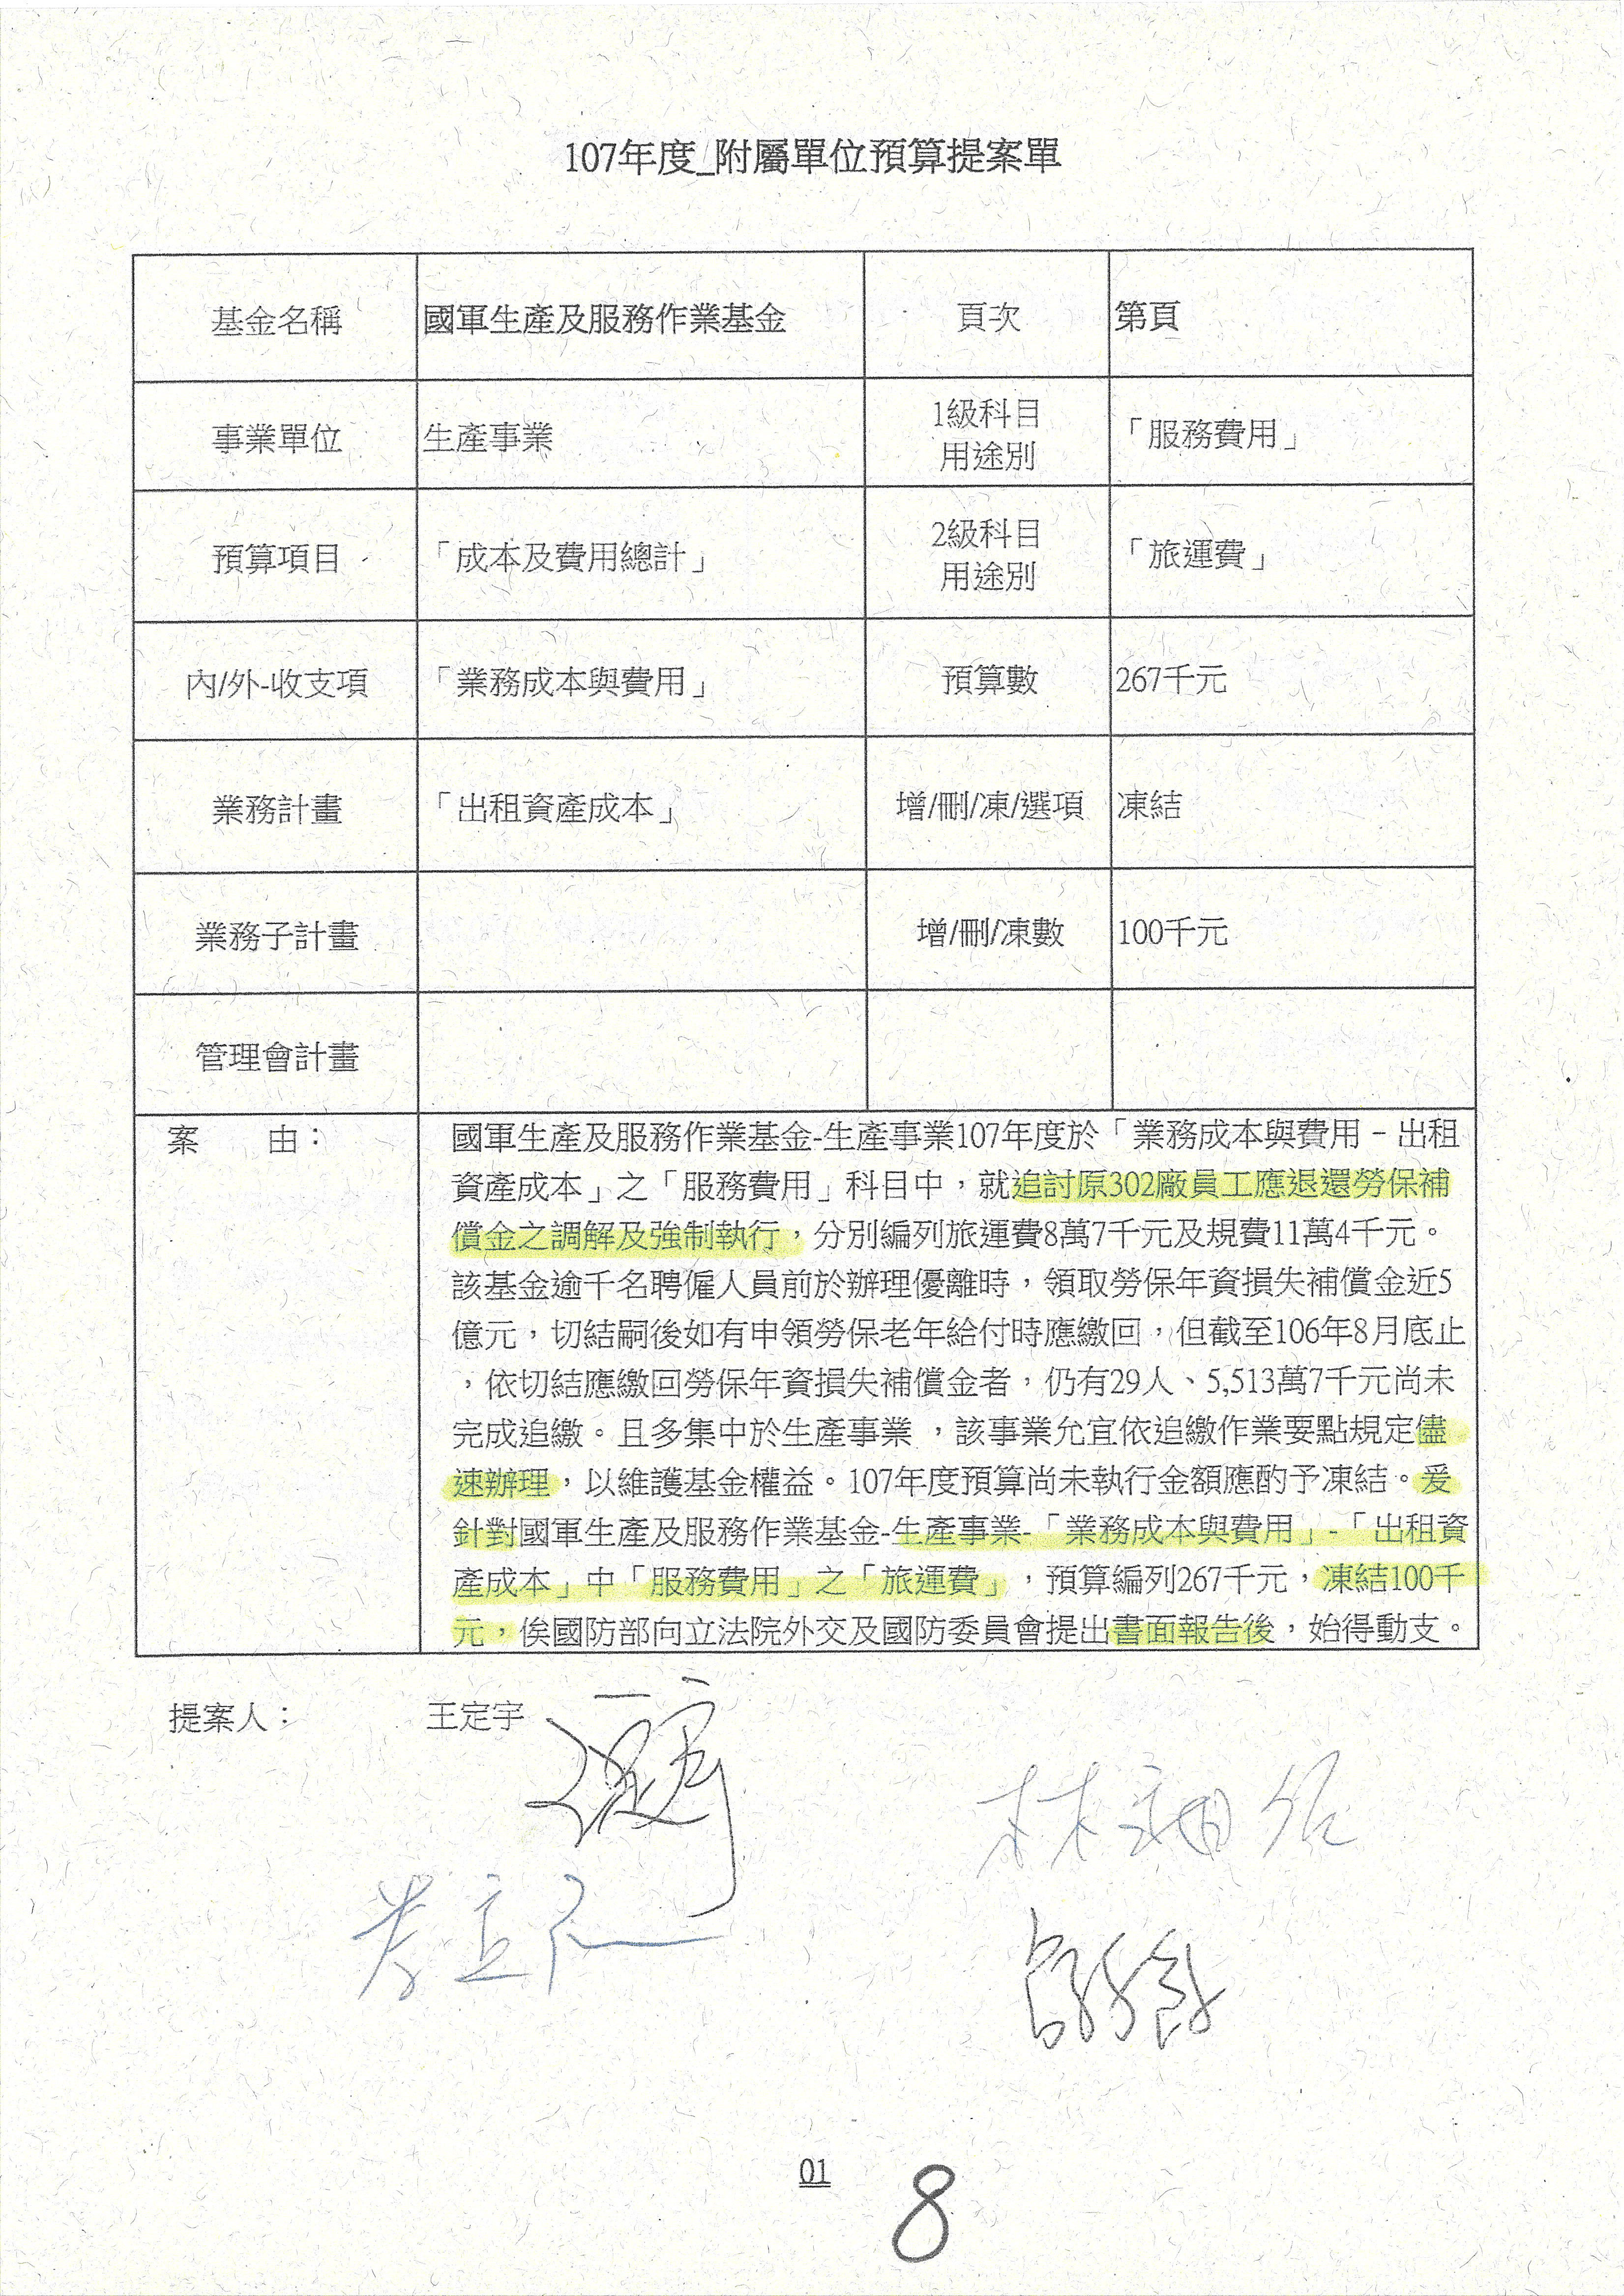 107年度_附屬單位預算提案單
基金名稱 國軍生產及服務作業基金 頁次 第頁
事業單位 生產事業 1級科目 用途別 「服務費用」
預算項目 「成本及費用總計」 2級科目 用途別 「旅運費」
內/外-收支項 「業務成本與費用」 預算數 267千元
業務計畫 「出租資產成本」 增/刪/凍/選項 凍結
業務子計畫 增/刪/凍數 100千元
管理會計畫
案 由： 國軍生產及服務作業基金-生產事業107年度於「業務成本與費用－出租
資產成本」之「服務費用」科目中，就追討原302廠員工應退還勞保補
償金之調解及強制執行，分別編列旅運費8萬7千元及規費11萬4千元。
該基金逾千名聘僱人員前於辦理優離時，領取勞保年資損失補償金近5
億元，切結嗣後如有申領勞保老年給付時應繳回，但截至106年8月底止
，依切結應繳回勞保年資損失補償金者，仍有29人、5,513萬7千元尚未
完成追繳。且多集中於生產事業 ，該事業允宜依追繳作業要點規定儘
速辦理，以維護基金權益。107年度預算尚未執行金額應酌予凍結。爰
針對國軍生產及服務作業基金-生產事業-「業務成本與費用」-「出租資
產成本」中「服務費用」之「旅運費」，預算編列267千元，凍結100千
元，俟國防部向立法院外交及國防委員會提出書面報告後，始得動支。
提案人： 王定宇
01
8